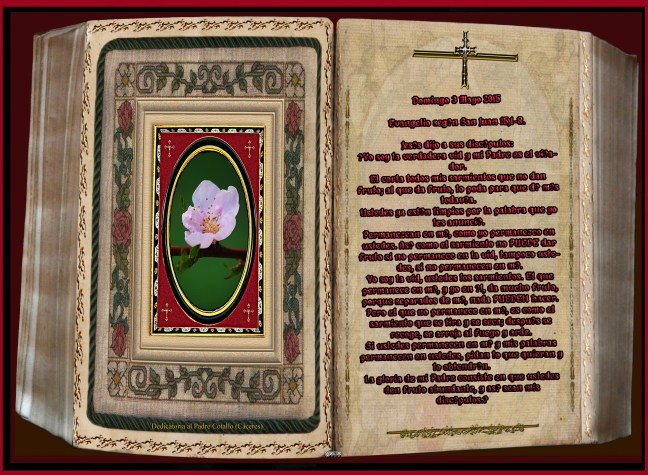 Dedicatoria al Padre Cotallo (Caceres)
Domingo 3 Mayo 2015
Evangelio seg?n San Juan 15,1-8.
Jes?s dijo a sus disc?pulos:
?Yo soy la verdadera vid y mi Padre es el vi?a-
dor.
El corta todos mis sarmientos que no dan
fruto; al que da fruto, lo poda para que d? m?s
todav?a.
Ustedes ya est?n limpios por la palabra que yo
les anunci?.
Permanezcan en m?, como yo permanezco en
ustedes. As? como el sarmiento no PUEDE dar
fruto si no permanece en la vid, tampoco uste-
des, si no permanecen en m?.
Yo soy la vid, ustedes los sarmientos. El que
permanece en m?, y yo en ?l, da mucho fruto,
porque separados de m?, nada PUEDEN hacer.
Pero el que no permanece en m?, es como el
sarmiento que se tira y se seca; despu?s se
recoge, se arroja al fuego y arde.
Si ustedes permanecen en m? y mis palabras
permanecen en ustedes, pidan lo que quieran y
lo obtendr?n.
La gloria de mi Padre consiste en que ustedes
den fruto abundante, y as? sean mis
disc?pulos.?